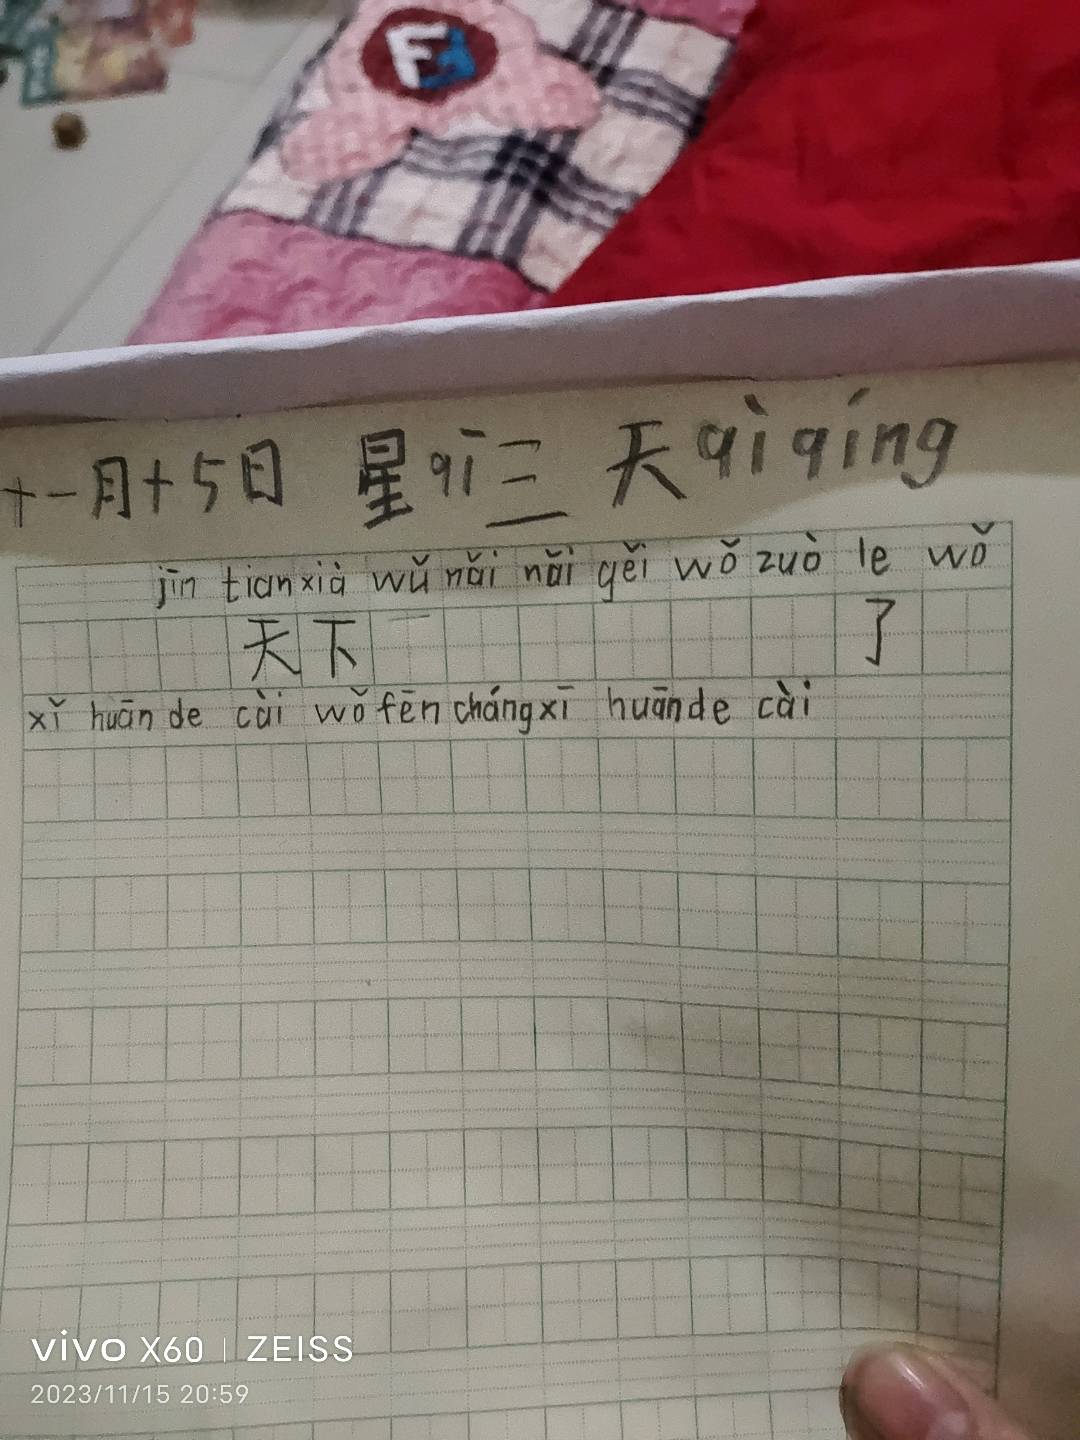 十一月十5日 星qī三 天qìqíng
jīn tianxià wǔ nǎi nǎi gěi wǒ zuò le wǒ
天下 了
xǐ huān de cài wǒ fēn chángxī huānde cài
vivo X60 | ZEISS
2023/11/15 20:59